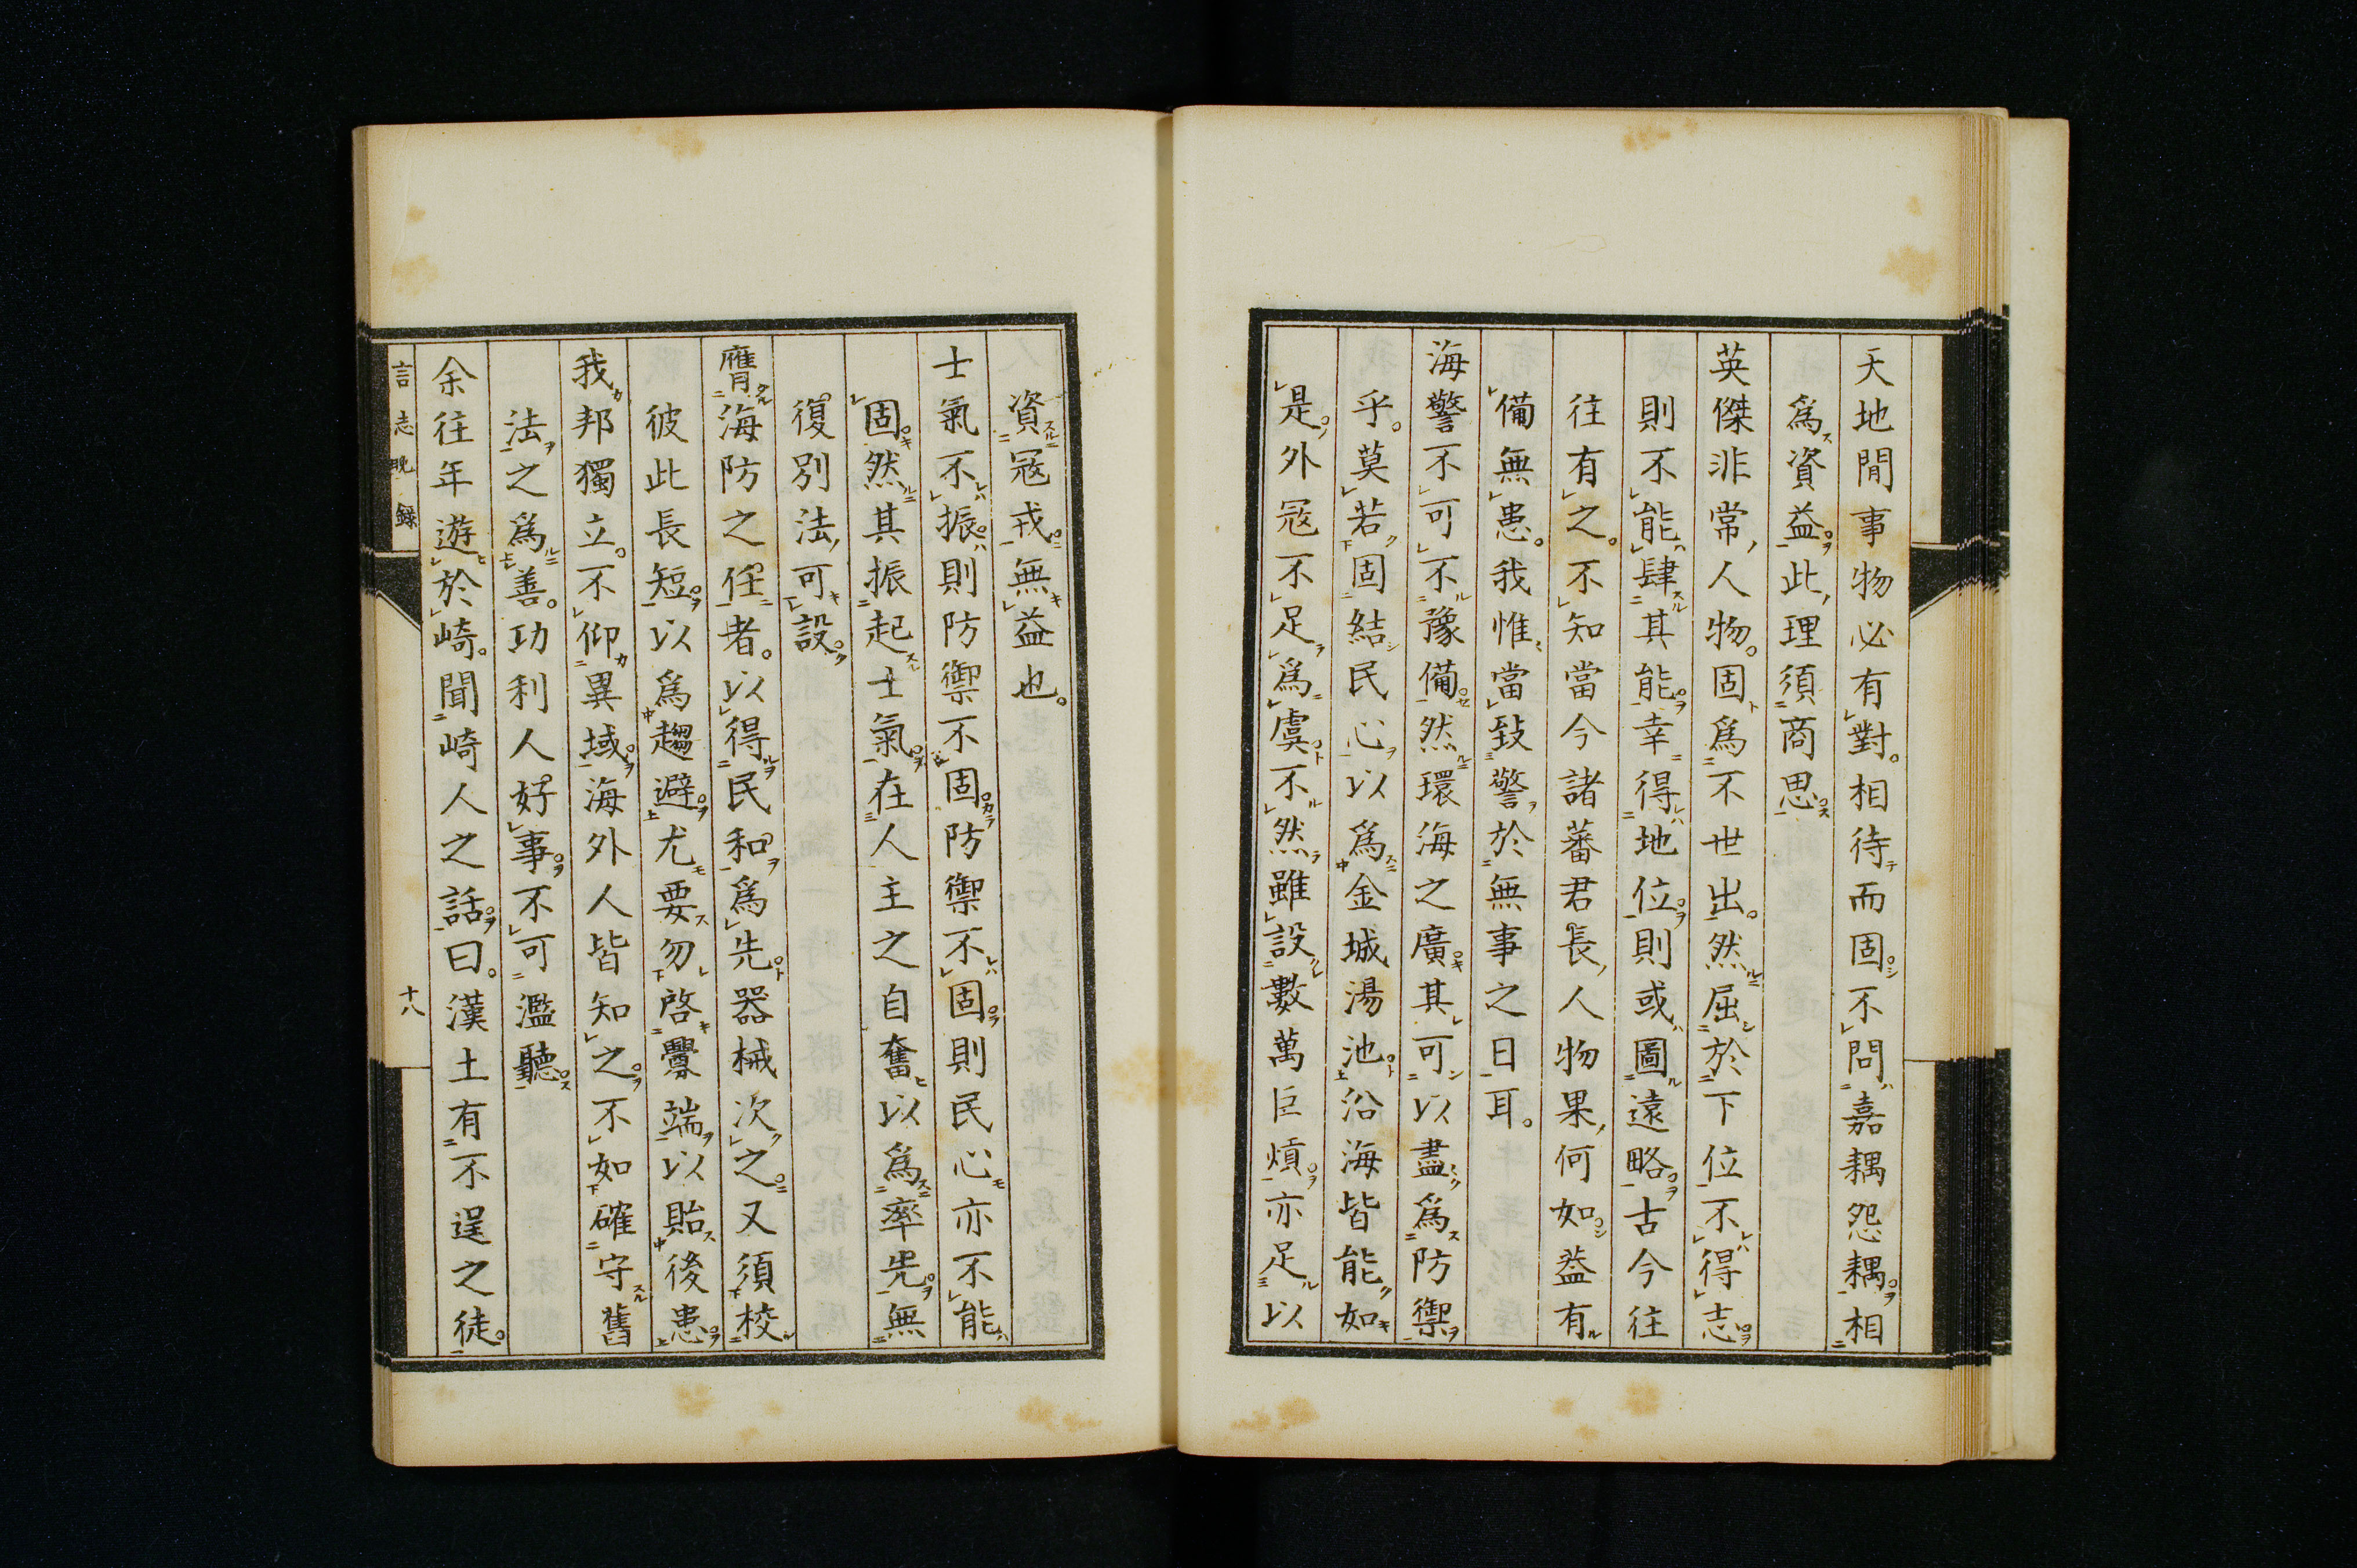 天地閒事物必有對。相待而固。不問嘉耦怨耦。相
爲資益。此理須商思。
英傑非常人物。固爲不世出。然屈於下位不得志。
則不能肆其能。幸得地位。則或圖遠略。古今往
往有之。不知當今諸蕃君長人物果何如。益有
備無患。我惟當致警於無事之日耳。
海警不可不豫備。然環海之廣。其可以盡爲防禦
乎。莫若固結民心以爲金城湯池。沿海皆能如
是。外冦不足爲虞。不然雖設數萬巨熕。亦足以
資冦戎。無益也。
士氣不振。則防禦不固。防禦不固。則民心亦不能
固。然其振起士氣。在人主之自奮以爲率先。無
復別法可設。
膺海防之任者。以得民和爲先。器械次之。又須校
彼此長短。以爲趨避。尤要勿啓釁端以貽後患。
我邦獨立。不仰異域。海外人皆知之。不如確守舊
法之爲善。功利人好事。不可濫聽。
余往年遊於崎。聞崎人之話。曰。漢土有不逞之徒。
言志晩録
十八